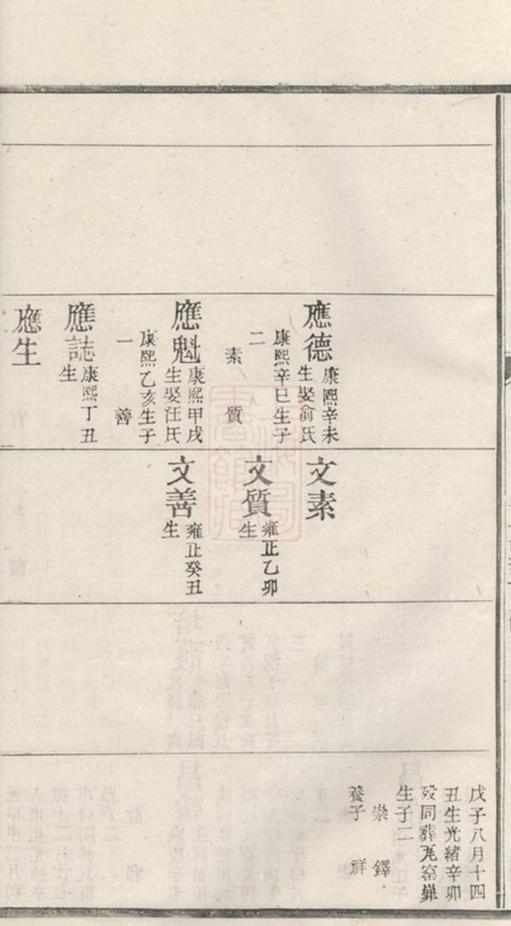 應德
康熙辛未
生娶俞氏
康熙辛巳生子
二
素 質
應魁
康熙甲戌
生娶汪氏
康熙乙亥生子
一 善
應誌
康熙丁丑
生
應生
文素
文質
雍正乙卯
生
文善
雍正癸丑
生
戊子八月十四
丑生光緒辛卯
歿同葬瓦窑
生子二
崇 鐸
養子 祥